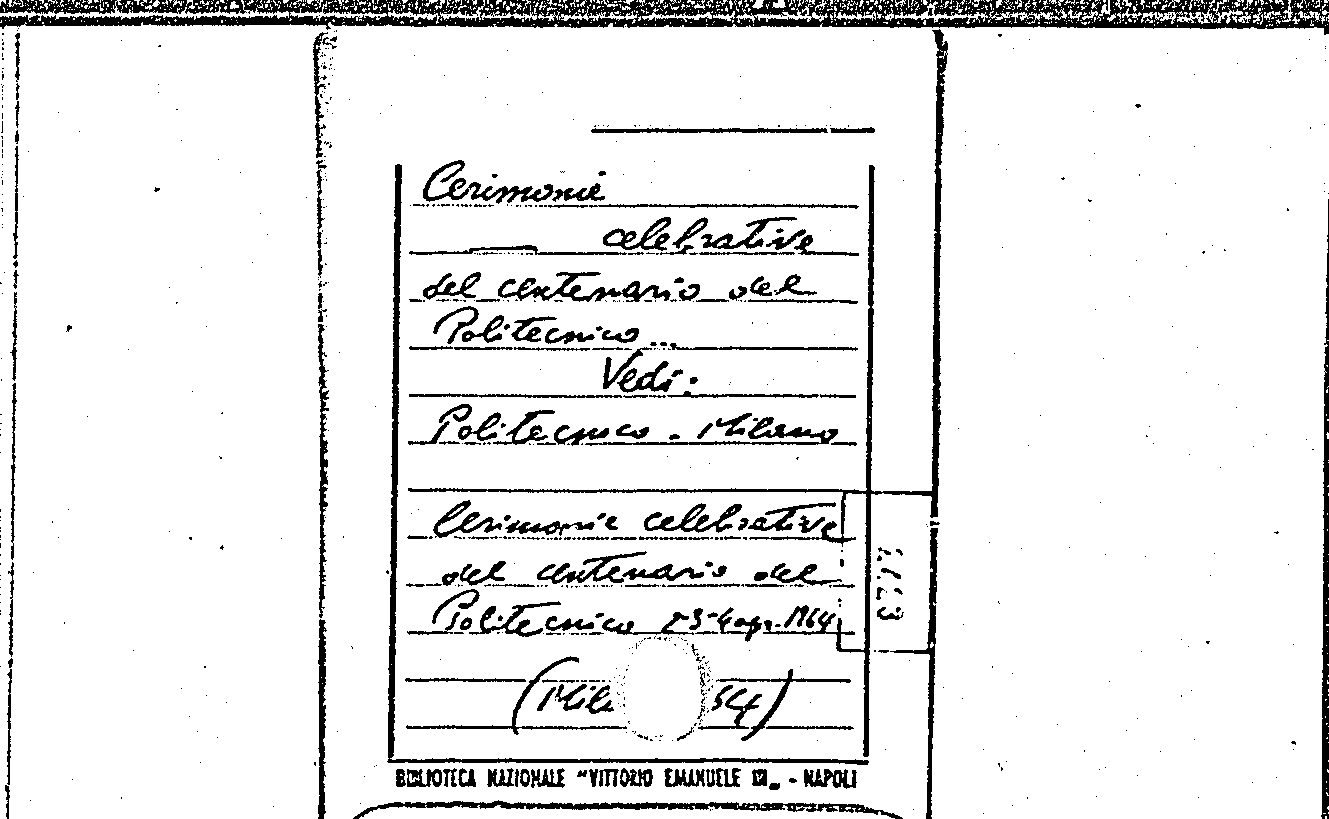 Cerimonie
celebrative
del centenario del
Politecnico...
Vedi:
Politecnico - Milano
Cerimonie celebrative
del centenario del
Politecnico 3-4 apr. 1964
(Mil 64)
BIBLIOTECA NAZIONALE "VITTORIO EMANUELE III" - NAPOLI